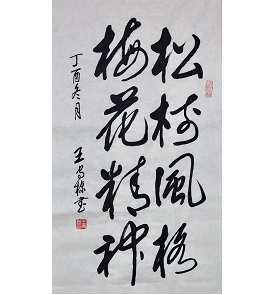 松树风格
梅花精神
丁酉冬月
王安稳书